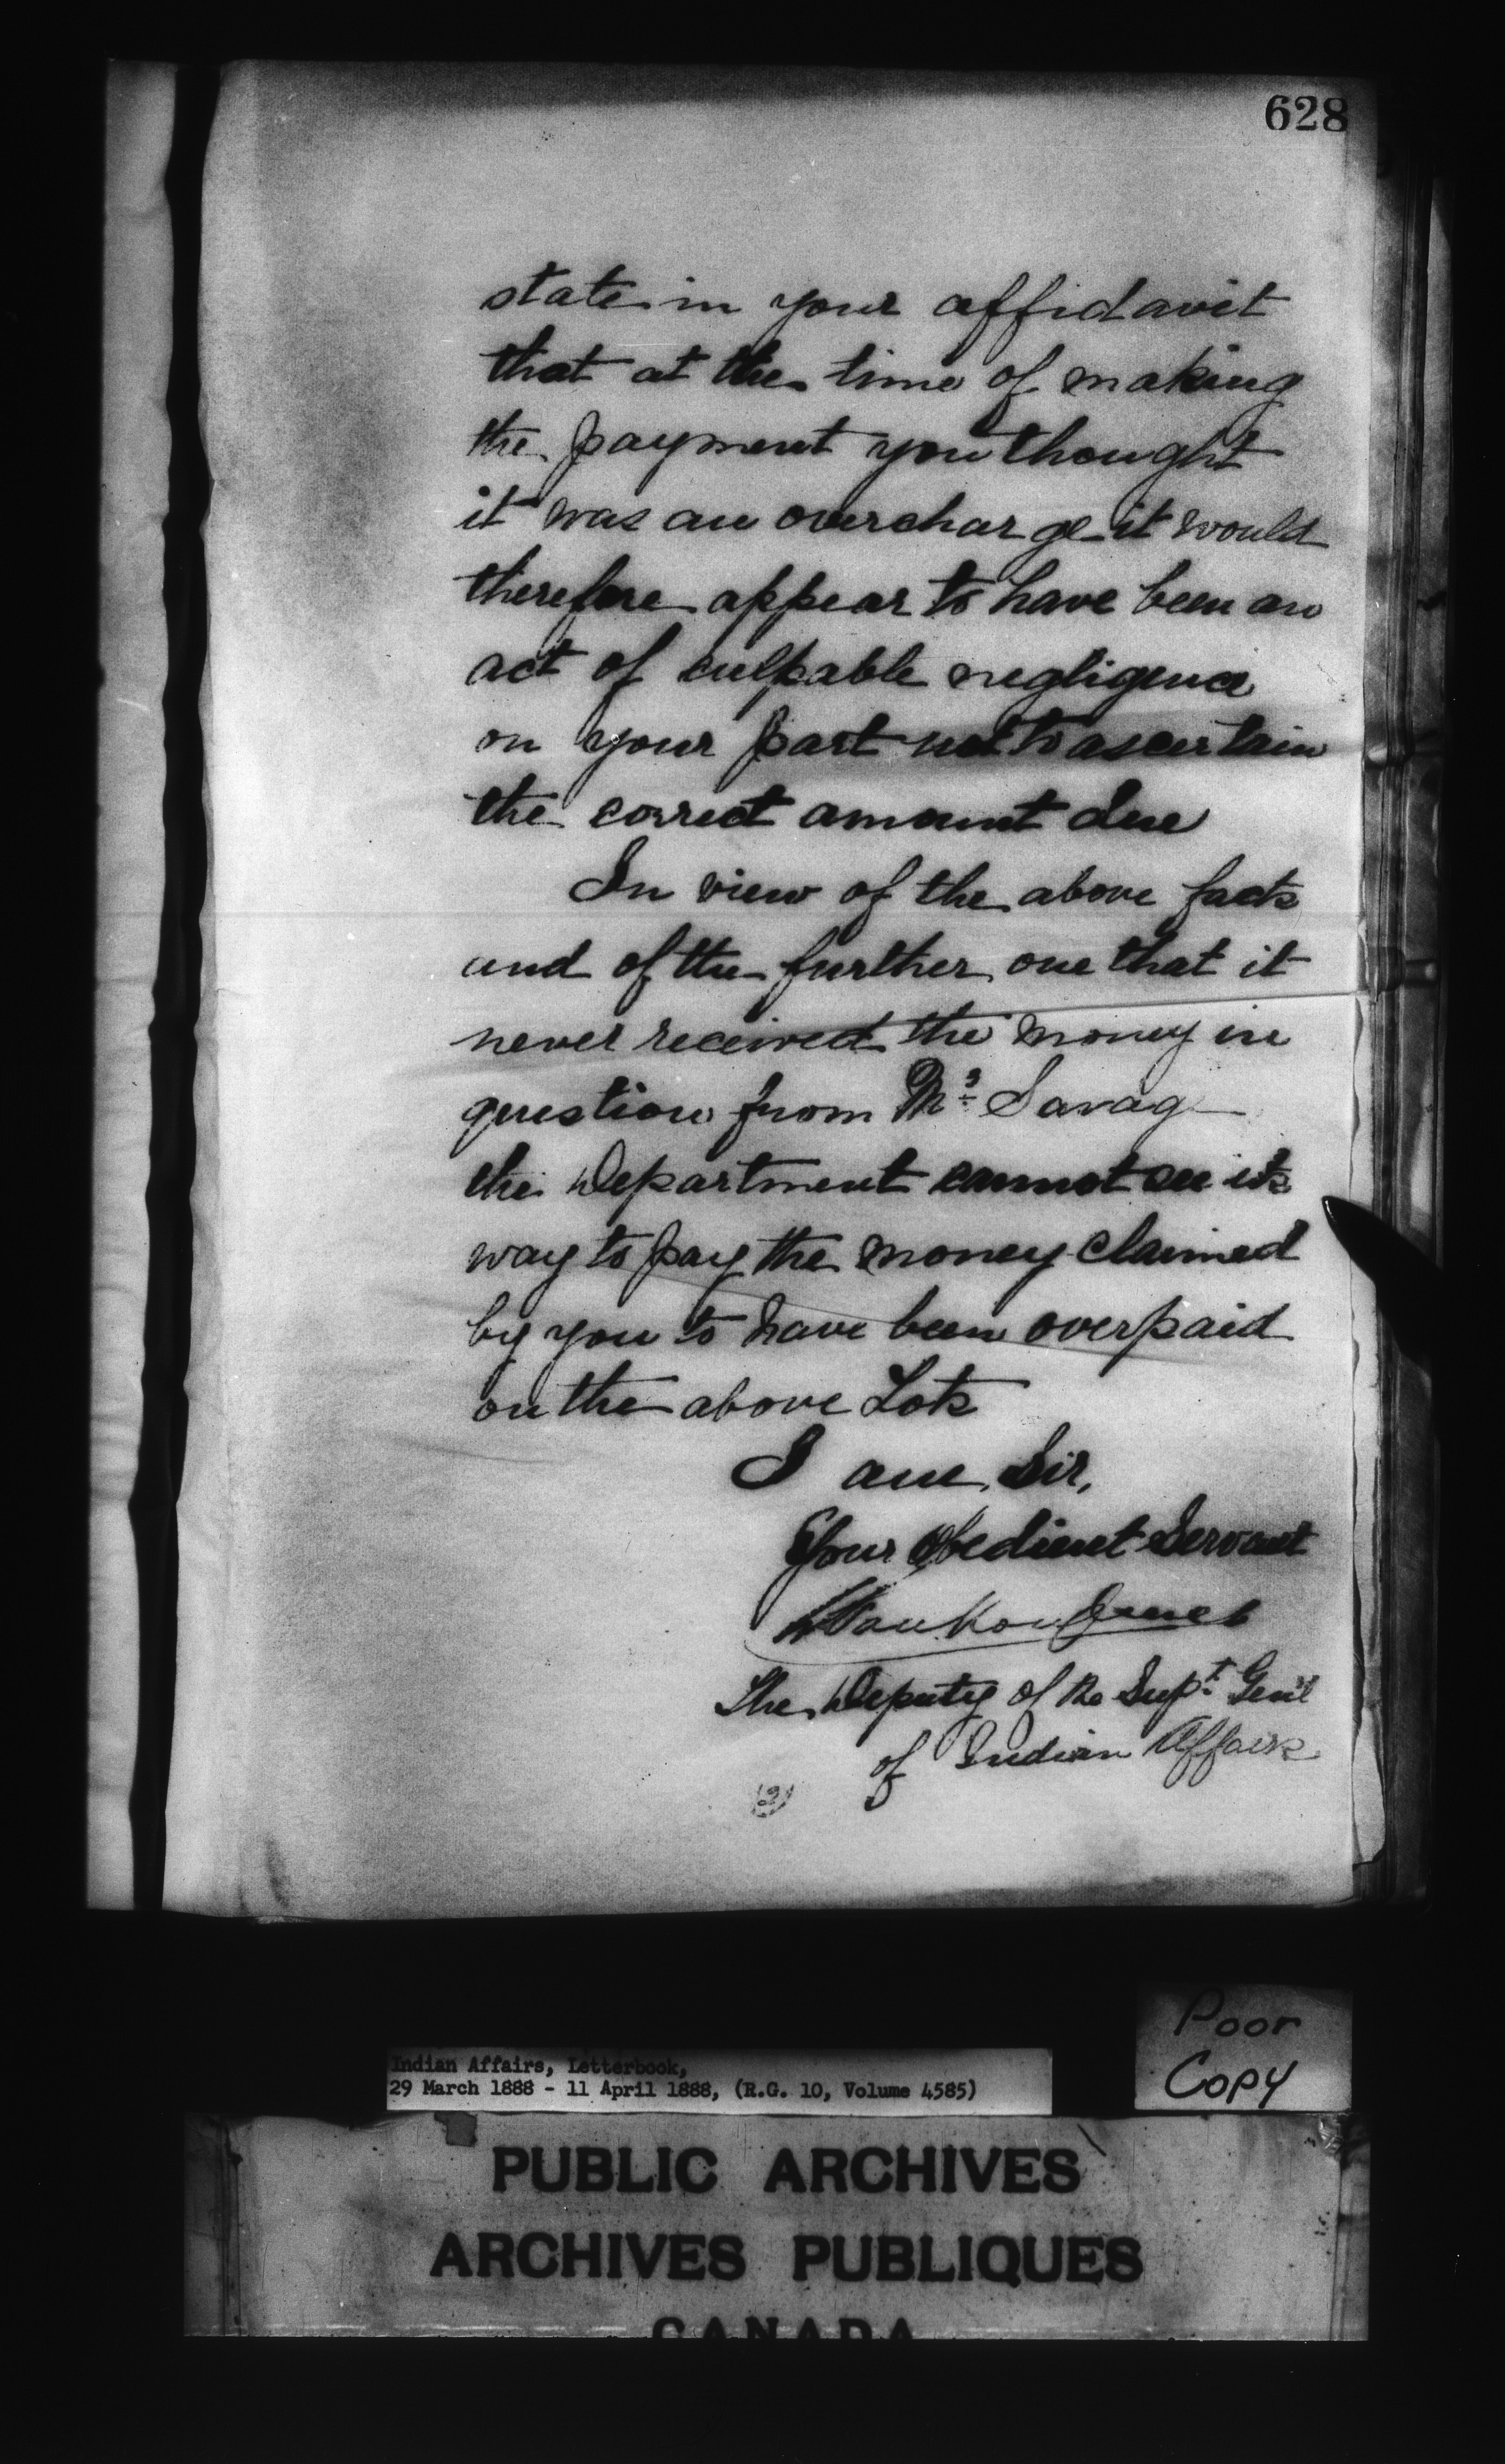 628
state in your affidavit
that at the time of making
the payment you thought
it was an overcharge it would
therefore appear to have been an
act of culpable negligence
on your part not to ascertain
the correct amount due
In view of the above facts
and of the further one that it
never received the money in
question from Mr. Savag
the Department cannot see its
way to pay the money claimed
by you to have been overpaid
on the above Lots
I am, Sir,
Your Obedient Servant
L Vankoughnet
The Deputy of the Supt. Gen'l
of Indian Affairs
Poor
Copy
Indian Affairs, Letterbook,
29 March 1888 - 11 April 1888, (R.G. 10, Volume 4585)
PUBLIC ARCHIVES
ARCHIVES PUBLIQUES
CANADA